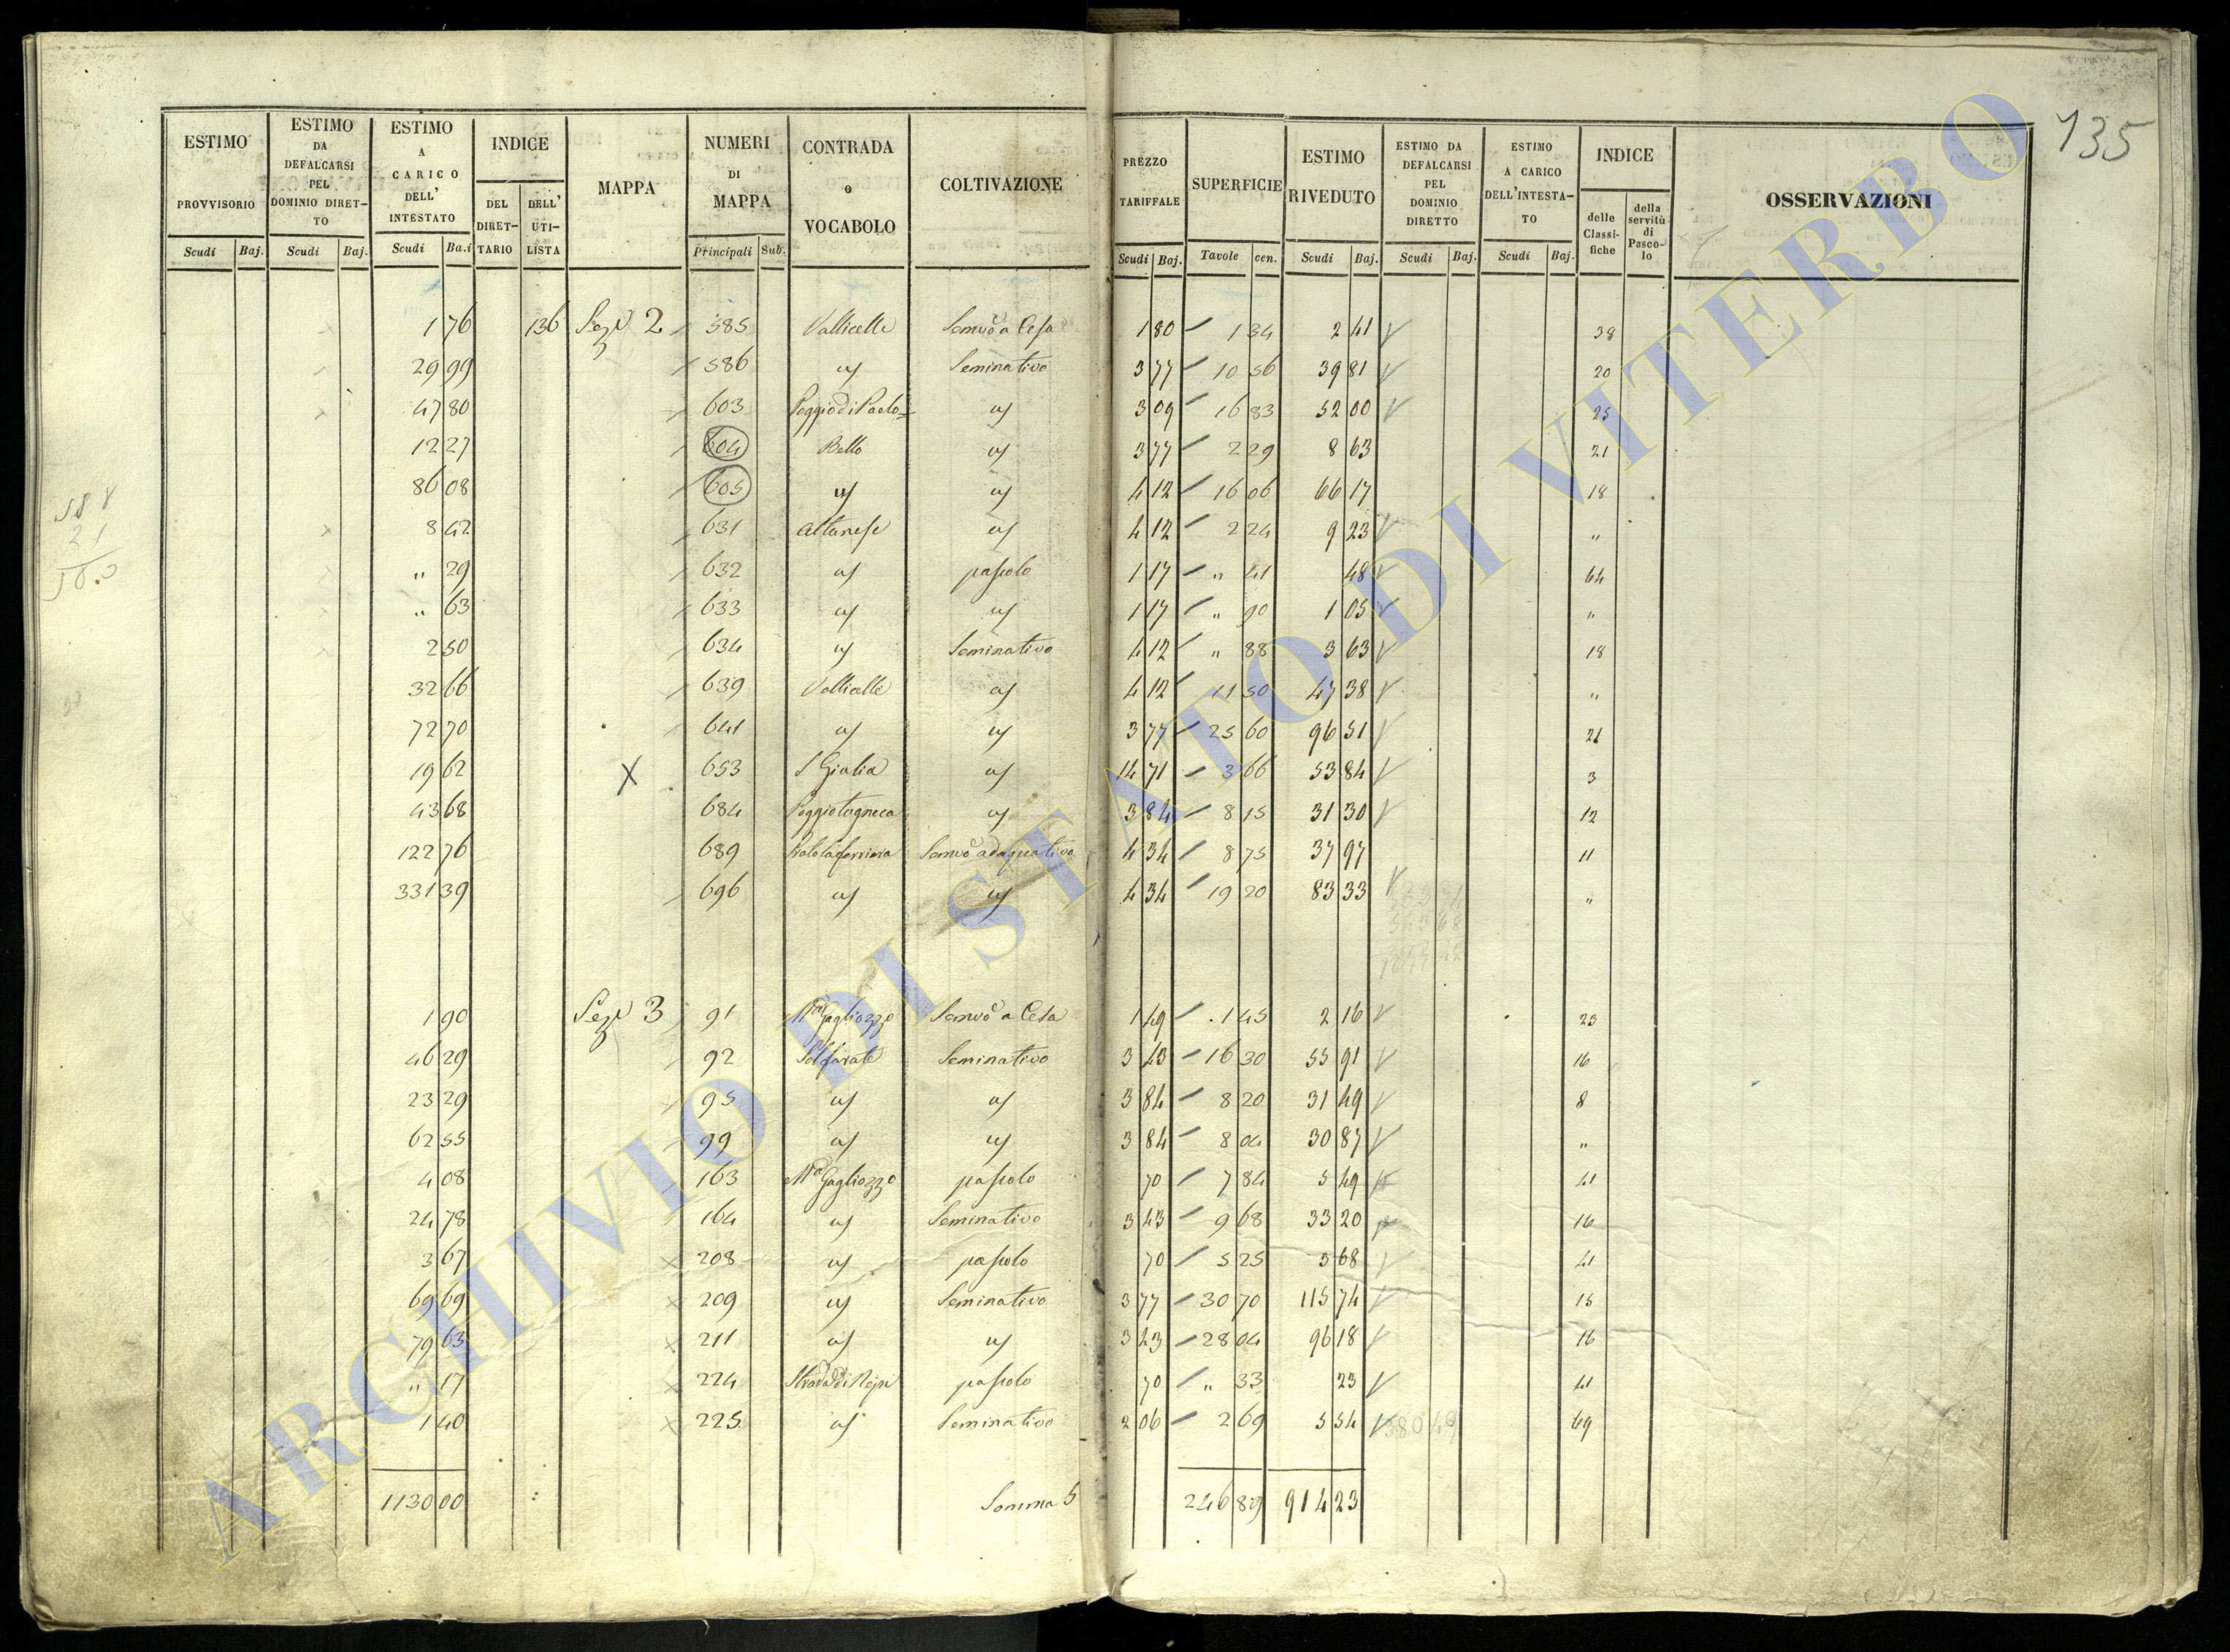 135
ESTIMO PROVVISORIO Scudi Baj.
ESTIMO DA DEFALCARSI PEL DOMINIO DIRET-TO Scudi Baj.
ESTIMO A CARICO DELL' INTESTATO Scudi Ba.i
INDICE DEL DIRET-TARIO DELL' UTI-LISTA
MAPPA
NUMERI DI MAPPA Principali Sub.
CONTRADA o VOCABOLO
COLTIVAZIONE
PREZZO TARIFFALE Scudi Baj.
SUPERFICIE Tavole cen.
ESTIMO RIVEDUTO Scudi Baj.
ESTIMO DA DEFALCARSI PEL DOMINIO DIRETTO Scudi Baj.
ESTIMO A CARICO DELL'INTESTA-TO Scudi Baj.
INDICE delle Classi-fiche della servitù di Pasco-lo
OSSERVAZIONI
1 76 136 Sez. 2 585 Vallicelle Semvo a Cesa 1 80 1 34 2 41 38
29 99 586 " Seminativo 3 77 10 56 39 81 20
47 80 603 Poggio di Paolo " 3 09 16 83 52 00 25
12 27 604 Bello " 3 77 2 29 8 63 21
86 08 605 " " 4 12 16 06 66 17 18
8 42 631 Altanese " 4 12 2 24 9 23 "
" 29 632 " pascolo 1 17 " 41 48 64
" 63 633 " " 1 17 " 90 1 05 "
2 50 634 " Seminativo 4 12 " 88 3 63 18
32 66 639 Vallicelle " 4 12 11 50 47 38 "
72 70 641 " " 3 77 25 60 96 51 21
19 62 X 653 S Giulia " 14 71 3 66 53 84 3
43 68 684 " 3 84 8 15 31 30 12
122 76 689 Semvo adaquativo 4 34 8 75 37 97 11
331 39 696 " " 4 34 19 20 83 33 "
1 90 Sez. 3 91 Gagliozzo Semvo a Cesa 1 49 1 45 2 16 23
46 29 92 Solfarate Seminativo 3 43 16 30 55 91 16
23 29 95 " " 3 84 8 20 31 49 8
62 55 99 " " 3 84 8 04 30 87 "
4 08 163 Gagliozzo pascolo 70 7 84 5 49 41
24 78 164 " Seminativo 3 43 9 68 33 20 16
3 67 208 " pascolo 70 5 25 3 68 41
69 69 209 " Seminativo 3 77 30 70 115 74 15
79 63 211 " " 3 43 28 04 96 18 16
" 17 224 Strada di pascolo 70 " 33 23 41
1 40 225 " Seminativo 2 06 2 69 5 54 69
1130 00 Somma 246 89 914 23
ARCHIVIO DI STATO DI VITERBO